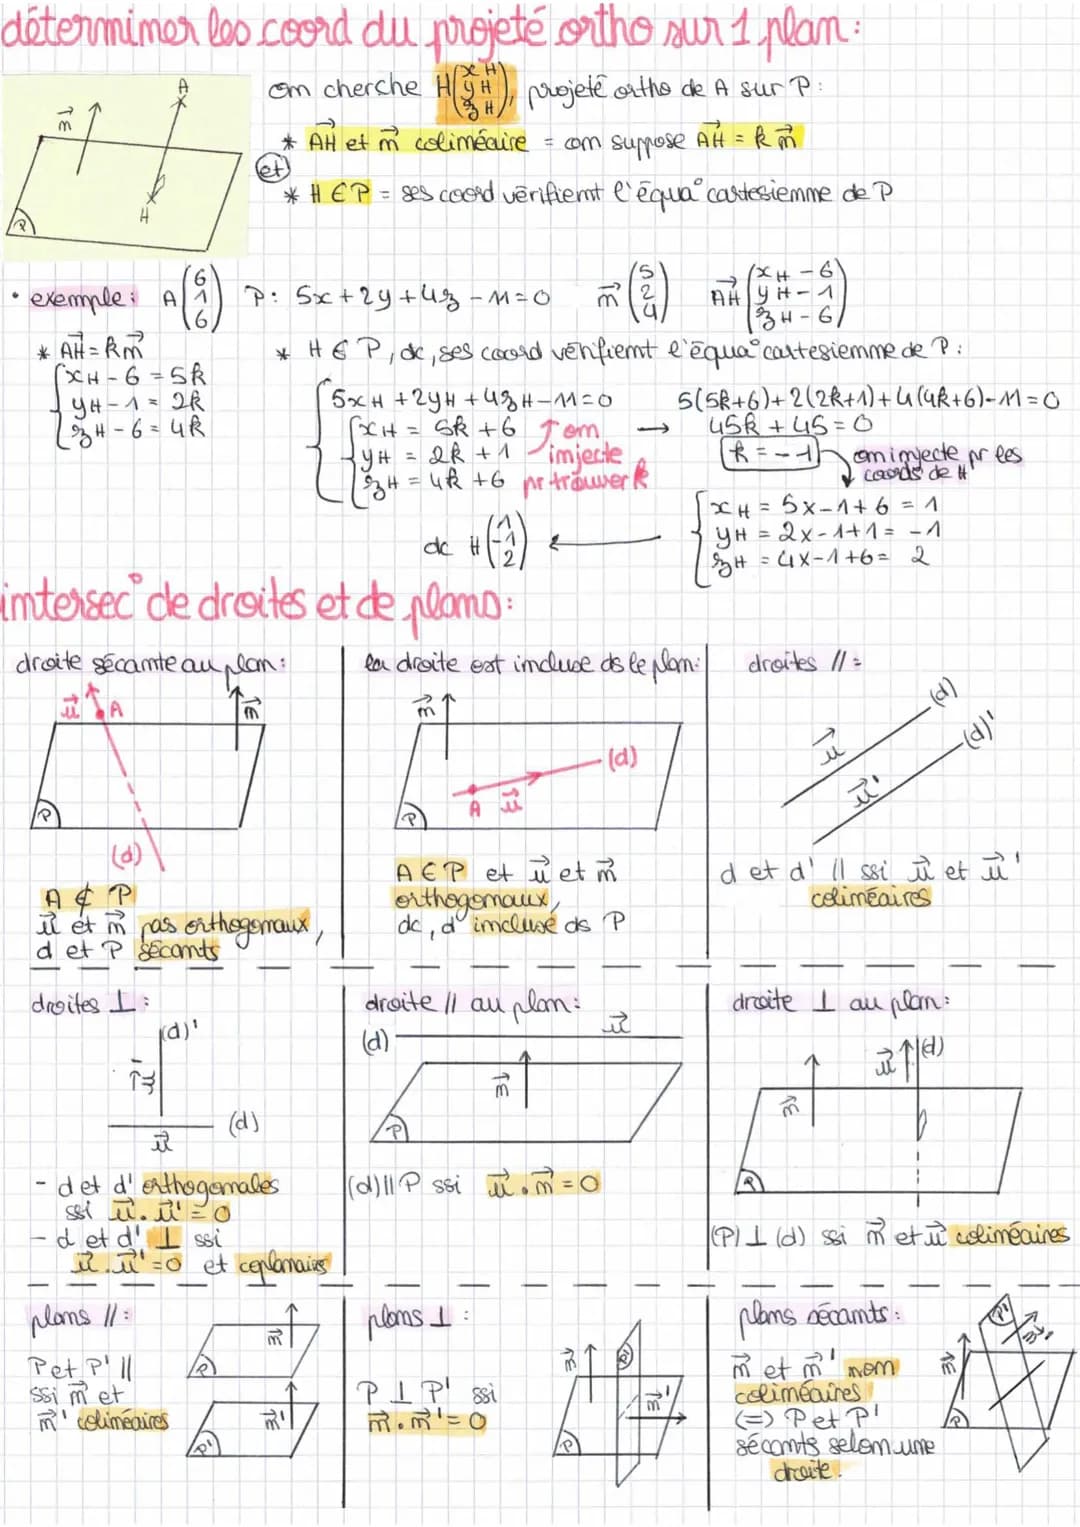 déterminer les coord du projeté ortho sur 1 plan :
A
n⃗
H
P
on cherche H(xH yH zH), projeté ortho de A sur P :
* AH⃗ et n⃗ colinéaire = on suppose AH⃗ = k n⃗
et
* H ∈ P = ses coord vérifient l'équa° cartesienne de P
• exemple : A(6 1 6) P : 5x + 2y + 4z - 11 = 0 n⃗(5 2 4) AH⃗(xH - 6 yH - 1 zH - 6)
* AH⃗ = k n⃗
xH - 6 = 5k
yH - 1 = 2k
zH - 6 = 4k
* H ∈ P, dc, ses coord vérifient l'équa° cartesienne de P :
5xH + 2yH + 4zH - 11 = 0
xH = 5k + 6
yH = 2k + 1
zH = 4k + 6
↑ on injecte pr trouver k
→
5(5k+6) + 2(2k+1) + 4(4k+6) - 11 = 0
45k + 45 = 0
k = -1
on injecte pr les coords de H
xH = 5x-1+6 = 1
yH = 2x-1+1 = -1
zH = 4x-1+6 = 2
dc H(1 -1 2) ←
intersec° de droites et de plans :
droite sécante au plan :
u⃗ A n⃗
P
(d)
A ∉ P
u⃗ et n⃗ pas orthogonaux,
d et P sécants
la droite est incluse ds le plan :
n⃗
(d)
A u⃗
P
A ∈ P et u⃗ et n⃗
orthogonaux,
dc, d incluse ds P
droites // :
(d)
(d)'
u⃗
u⃗'
d et d' // ssi u⃗ et u⃗'
colinéaires
droites ⊥ :
(d)'
u⃗'
(d)
u⃗
- d et d' orthogonales
ssi u⃗ . u⃗' = 0
- d et d' ⊥ ssi
u⃗ . u⃗' = 0 et coplanaires
droite // au plan :
(d) u⃗
n⃗
P
(d) // P ssi u⃗ . n⃗ = 0
droite ⊥ au plan :
u⃗ (d)
n⃗
P
(P) ⊥ (d) ssi n⃗ et u⃗ colinéaires
plans // :
n⃗
P
P et P' //
ssi n⃗ et
n⃗' colinéaires
n⃗'
P'
plans ⊥ :
n⃗
n⃗'
P
P ⊥ P' ssi
n⃗ . n⃗' = 0
plans sécants :
P'
n⃗'
n⃗
P
n⃗ et n⃗' non
colinéaires
(=) P et P'
sécants selon une
droite.